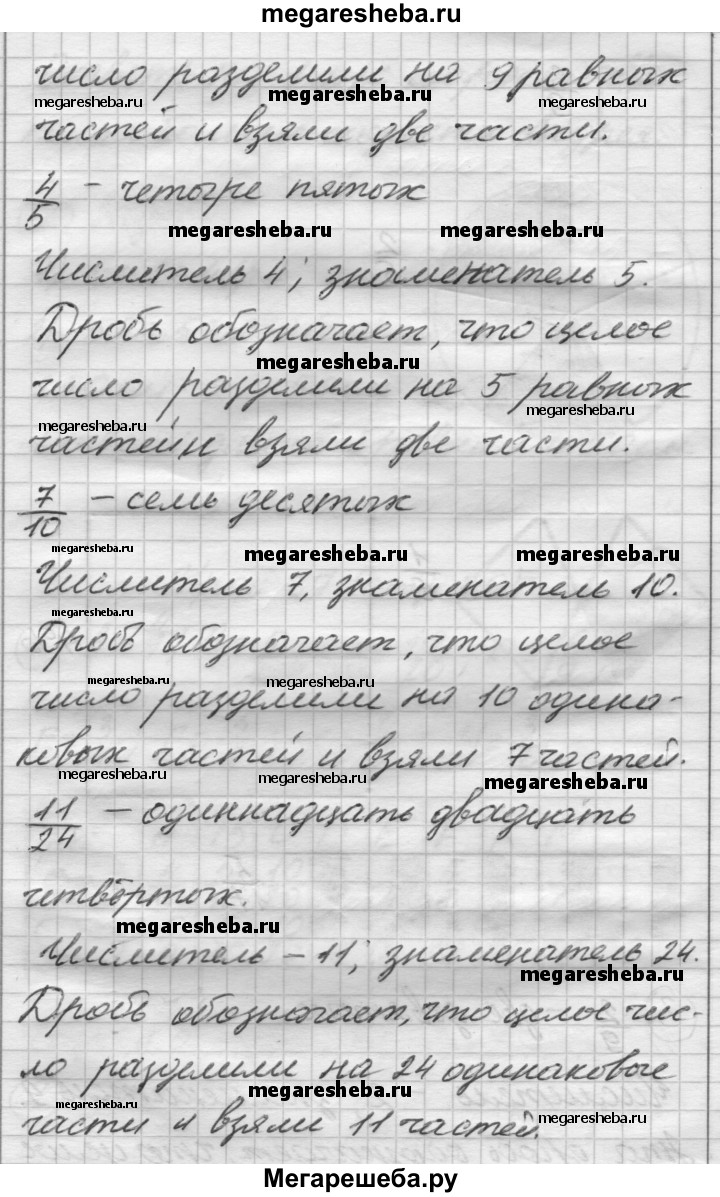 megaresheba.ru
число разделили на 9 равных
megaresheba.ru megaresheba.ru megaresheba.ru
частей и взяли две части.
4/5 – четыре пятых
megaresheba.ru megaresheba.ru
Числитель 4; знаменатель 5.
Дробь обозначает, что целое
megaresheba.ru
число разделили на 5 равных
megaresheba.ru megaresheba.ru
частей и взяли две части.
7/10 – семь десятых
megaresheba.ru megaresheba.ru megaresheba.ru
Числитель 7, знаменатель 10.
megaresheba.ru
Дробь обозначает, что целое
megaresheba.ru megaresheba.ru
число разделили на 10 одина-
ковых частей и взяли 7 частей.
megaresheba.ru megaresheba.ru megaresheba.ru
11/24 – одиннадцать двадцать
четвёртых.
megaresheba.ru
Числитель – 11; знаменатель 24.
megaresheba.ru
Дробь обозначает, что целое чис-
ло разделили на 24 одинаковые
megaresheba.ru megaresheba.ru
части и взяли 11 частей.
megaresheba.ru
Мегарешеба.ру